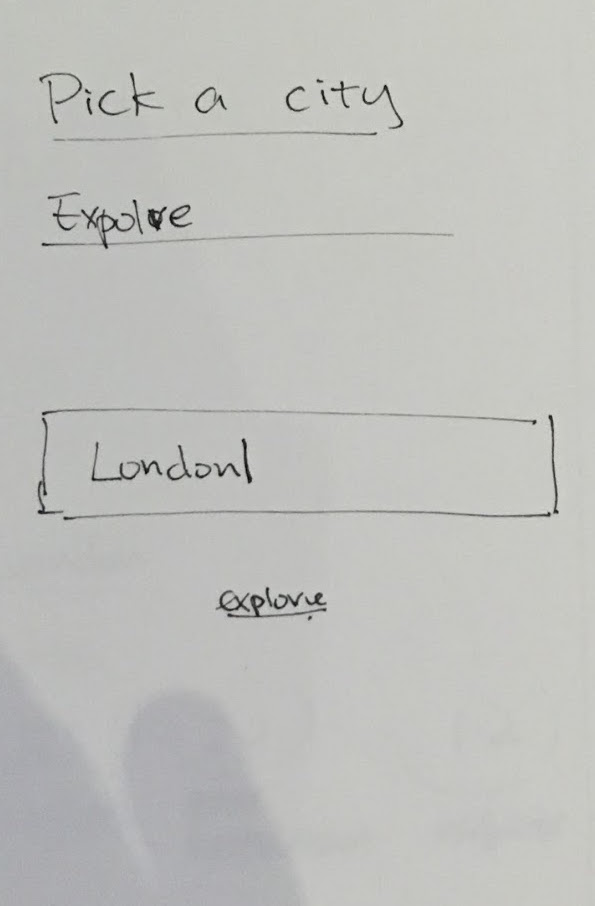 Pick a city
Expolre
London|
explore